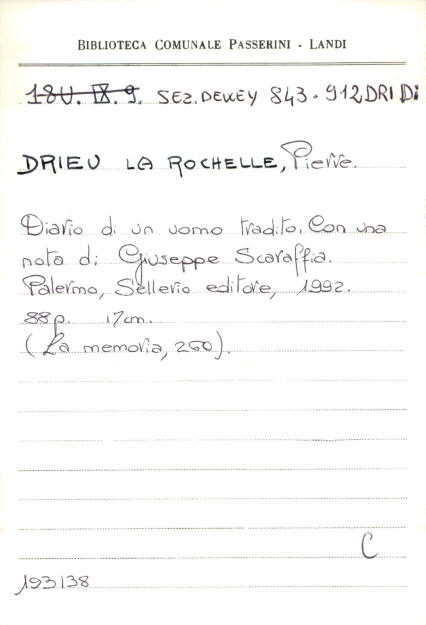 BIBLIOTECA COMUNALE PASSERINI - LANDI
18U. IX. 9. SEZ. DEWEY 843.912 DRI Di
DRIEU LA ROCHELLE, Pierre.
Diario di un uomo tradito. Con una
nota di Giuseppe Scaraffia.
Palermo, Sellerio editore, 1992.
88 p. 17 cm.
(La memoria, 260).
C
193138